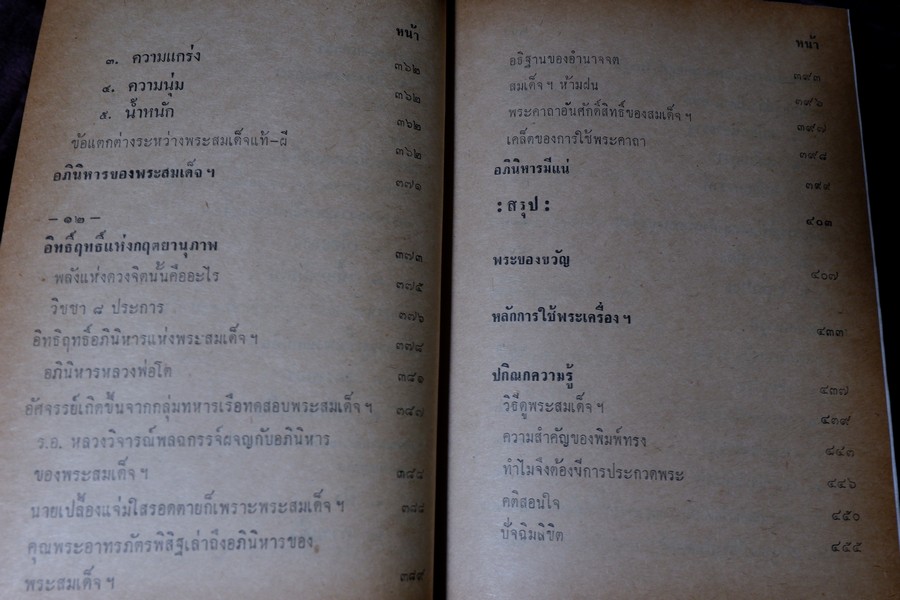 หน้า
๓. ความแกร่ง ๓๖๒
๔. ความนุ่ม ๓๖๒
๕. น้ำหนัก ๓๖๒
ข้อแตกต่างระหว่างพระสมเด็จแท้-ผี ๓๖๒
อภินิหารของพระสมเด็จ ฯ ๓๗๑
- ๑๒ -
อิทธิ์ฤทธิ์แห่งกฤตยานุภาพ ๓๗๓
พลังแห่งดวงจิตนั้นคืออะไร ๓๗๕
วิชชา ๘ ประการ ๓๗๖
อิทธิฤทธิ์อภินิหารแห่งพระสมเด็จ ฯ ๓๗๘
อภินิหารหลวงพ่อโต ๓๘๑
อัศจรรย์เกิดขึ้นจากกลุ่มทหารเรือทดสอบพระสมเด็จ ฯ ๓๘๗
ร.อ. หลวงวิจารณ์พลฉกรรจ์ผจญกับอภินิหาร
ของพระสมเด็จ ฯ ๓๘๘
นายเปล็องแจ่มใสรอดตายก็เพราะพระสมเด็จ ฯ ๓๘๘
คุณพระอาทรภัตรพิสิฐเล่าถึงอภินิหารของ
พระสมเด็จ ฯ ๓๘๙
หน้า
อธิฐานของอำนาจจิต ๓๙๓
สมเด็จ ฯ ห้ามฝน ๓๙๖
พระคาถาอันศักดิ์สิทธิ์ของสมเด็จ ฯ ๓๙๗
เคล็ดของการใช้พระคาถา ๓๙๘
อภินิหารมีแน่ ๓๙๙
: สรุป : ๔๐๓
พระของขวัญ ๔๐๗
หลักการใช้พระเครื่อง ฯ ๔๓๓
ปกิณกความรู้ ๔๓๗
วิธีดูพระสมเด็จ ฯ ๔๓๙
ความสำคัญของพิมพ์ทรง ๘๔๓
ทำไมจึงต้องมีการประกวดพระ ๔๔๖
คติสอนใจ ๔๕๐
ปัจฉิมลิขิต ๔๕๕